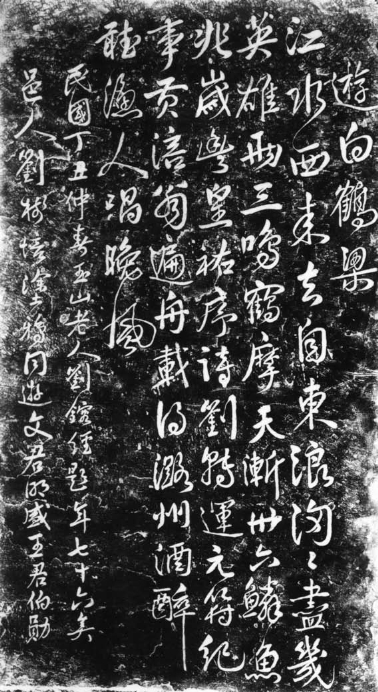 遊白鶴梁
江水西來去自東浪淘〻盡幾
英雄兩三鳴鶴摩天漸卅六鱗魚
兆歲豐皇祐序詩劉轉運元符紀
事黃涪翁遍舟載得潞州酒醉
聽漁人唱晚風
民國丁丑仲春五山老人劉鎔經題年七十六矣
邑人劉樹培塗士穆同遊文君明盛王君伯勛